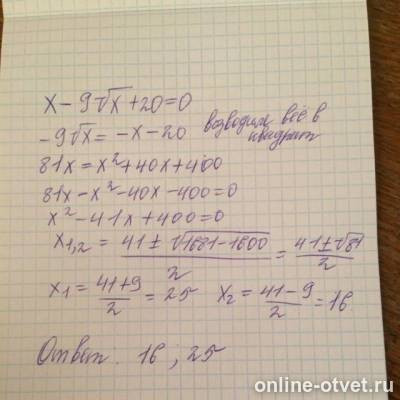 x - 9√x + 20 = 0
-9√x = -x - 20 возводим всё в квадрат
81x = x² + 40x + 400
81x - x² - 40x - 400 = 0
x² - 41x + 400 = 0
x₁,₂ = (41 ± √(1681 - 1600))/2 = (41 ± √81)/2
x₁ = (41 + 9)/2 = 25 x₂ = (41 - 9)/2 = 16
Ответ. 16 ; 25
online-otvet.ru